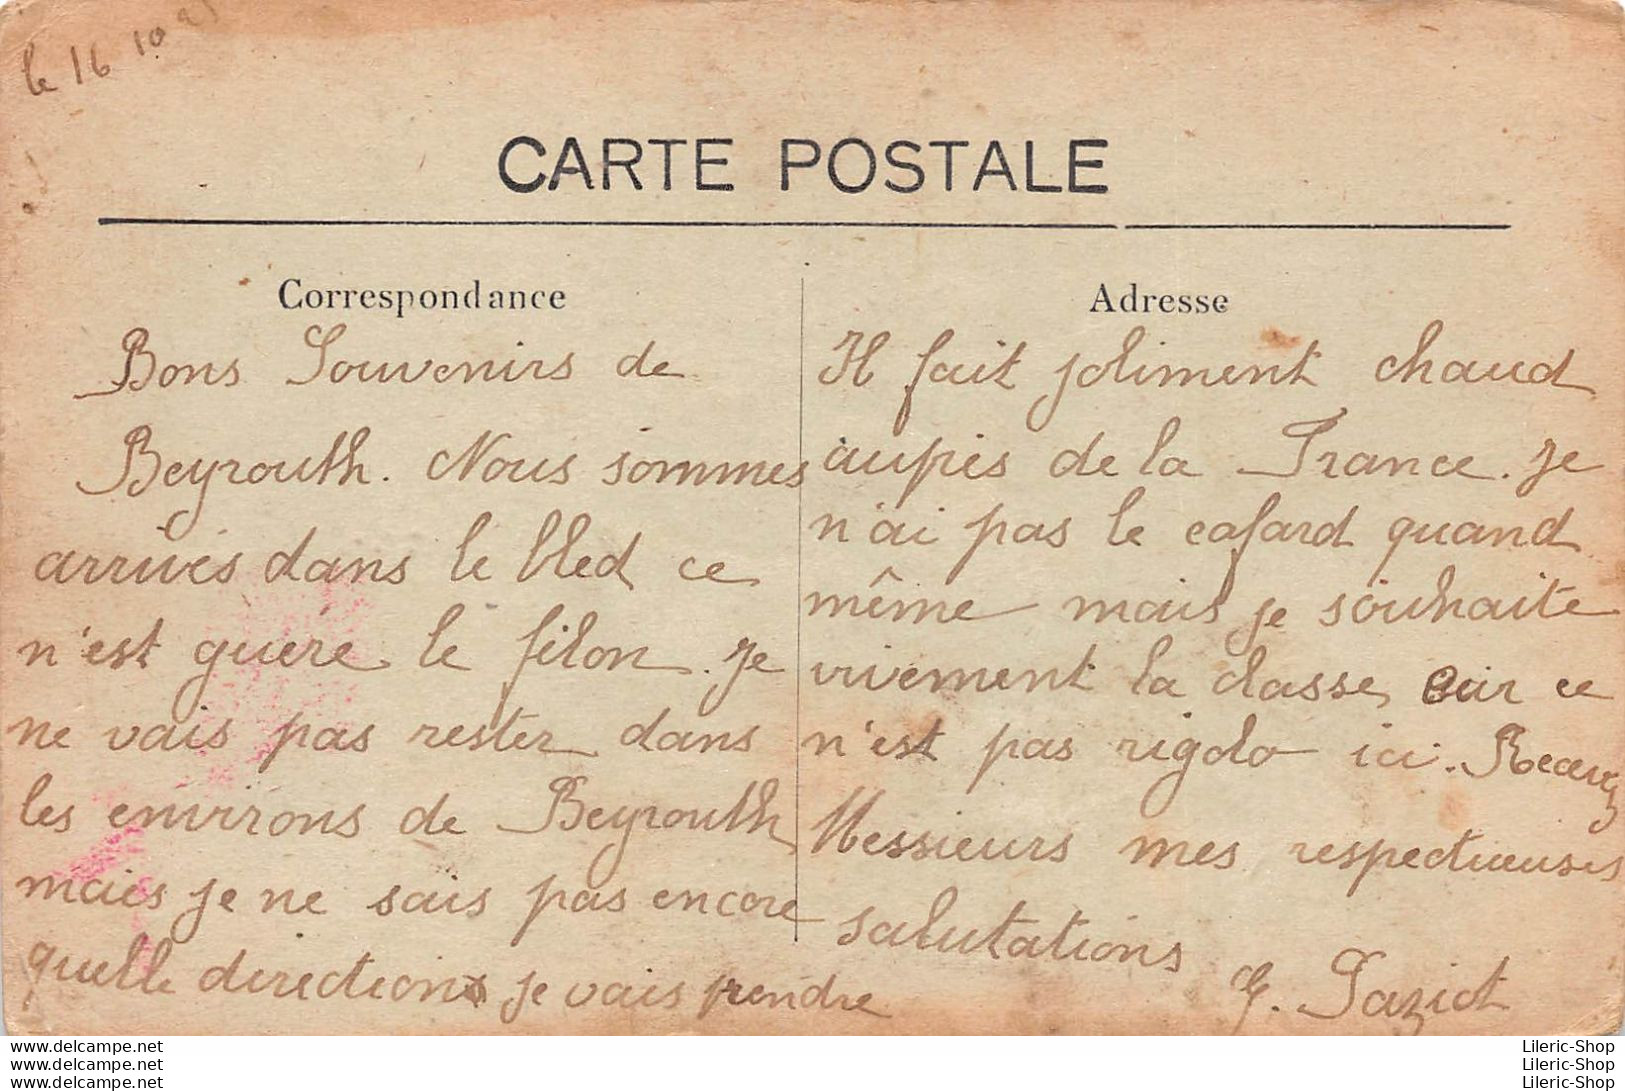 le 16 10
CARTE POSTALE
Correspondance
Bons Souvenirs de
Beyrouth. Nous sommes
arrivés dans le bled ce
n'est guère le filon. Je
ne vais pas rester dans
les environs de Beyrouth
mais je ne sais pas encore
quelle direction je vais prendre
Adresse
Il fait joliment chaud
auprès de la France. Je
n'ai pas le cafard quand
même mais je souhaite
vivement la classe, car ce
n'est pas rigolo ici. Recevez
Messieurs mes respectueuses
salutations
www.delcampe.net
www.delcampe.net
www.delcampe.net
Lileric-Shop
Lileric-Shop
Lileric-Shop